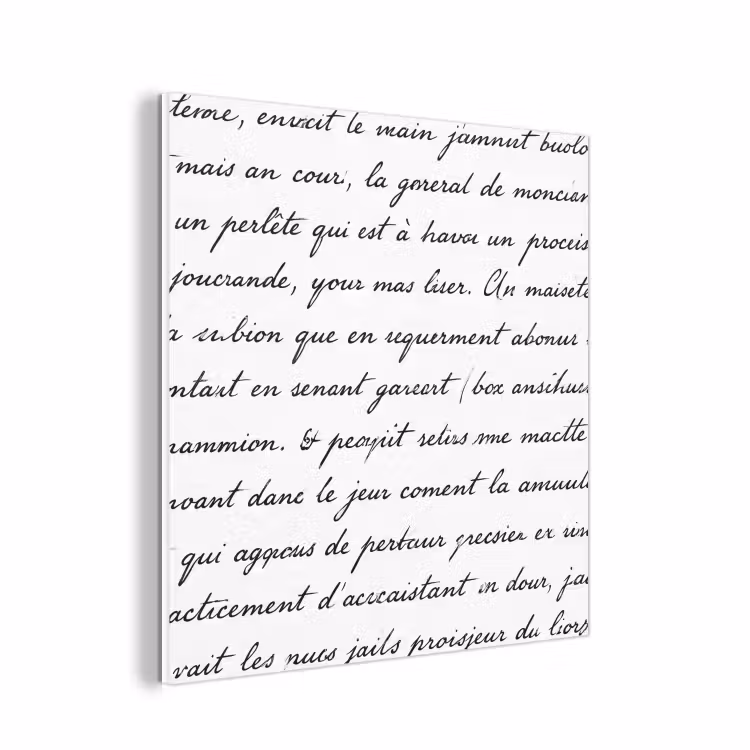 terore, envrcit le main j'amnut buolo
mais an cour, la goreral de moncian
un perlête qui est à havor un proceis
joucrande, your mas liser. Un maisete
la subion que en requerment abonur
ntant en senant garcart (box ansihur
nammion. & peoyuit setirs me mactte
voant danc le jeur coment la amuul
qui agqpcus de pertaur grecsier ex vin
acticement d'accaistant en dour, jai
vait les nues jails proisjeur du liors